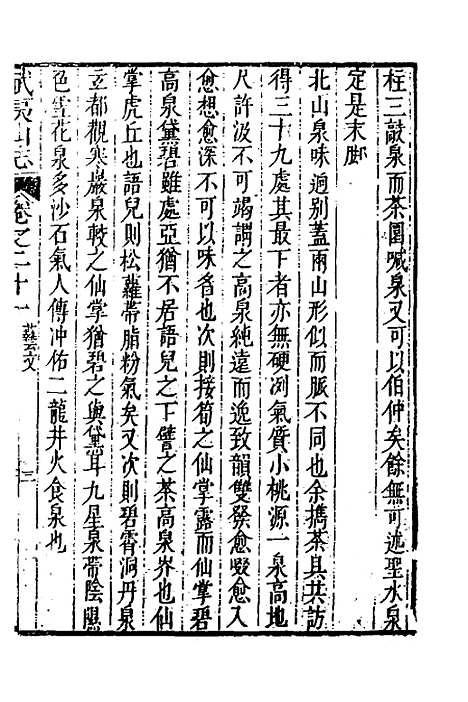 柱三敲泉而茶園喊泉又可以伯仲矣餘無可述聖水泉
定是末脚
北山泉味逈別蓋兩山形似而脈不同也余擕茶具共訪
得三十九處其最下者亦無硬冽氣質小桃源一泉高地
尺許汲不可竭謂之高泉純遠而逸致韻雙發愈啜愈入
愈想愈深不可以味名也次則接筍之仙掌露而仙掌碧
高泉黛碧雖處亞猶不居語兒之下譬之茶高泉界也仙
掌虎丘也語兒則松蘿帶脂粉氣矣又次則碧霄洞丹泉
玄都觀寒巖泉較之仙掌猶碧之與黛耳九星泉帶陰隰
色雪花泉多沙石氣人傳冲佑二龍井火食泉也
武夷山志 卷之二十一 藝文 三